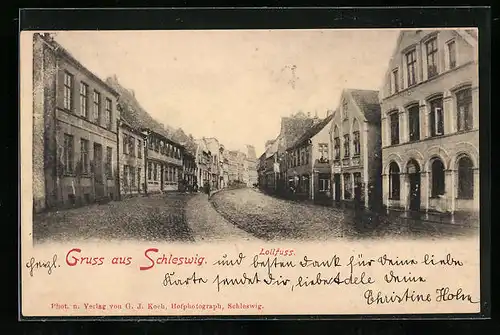 Lollfuss.
Gruss aus Schleswig.
Herzl. und besten Dank für Deine liebe
Karte sendet Dir, liebe Adele deine
Christine Holm
Phot. u. Verlag von G. J. Koch, Hofphotograph, Schleswig.